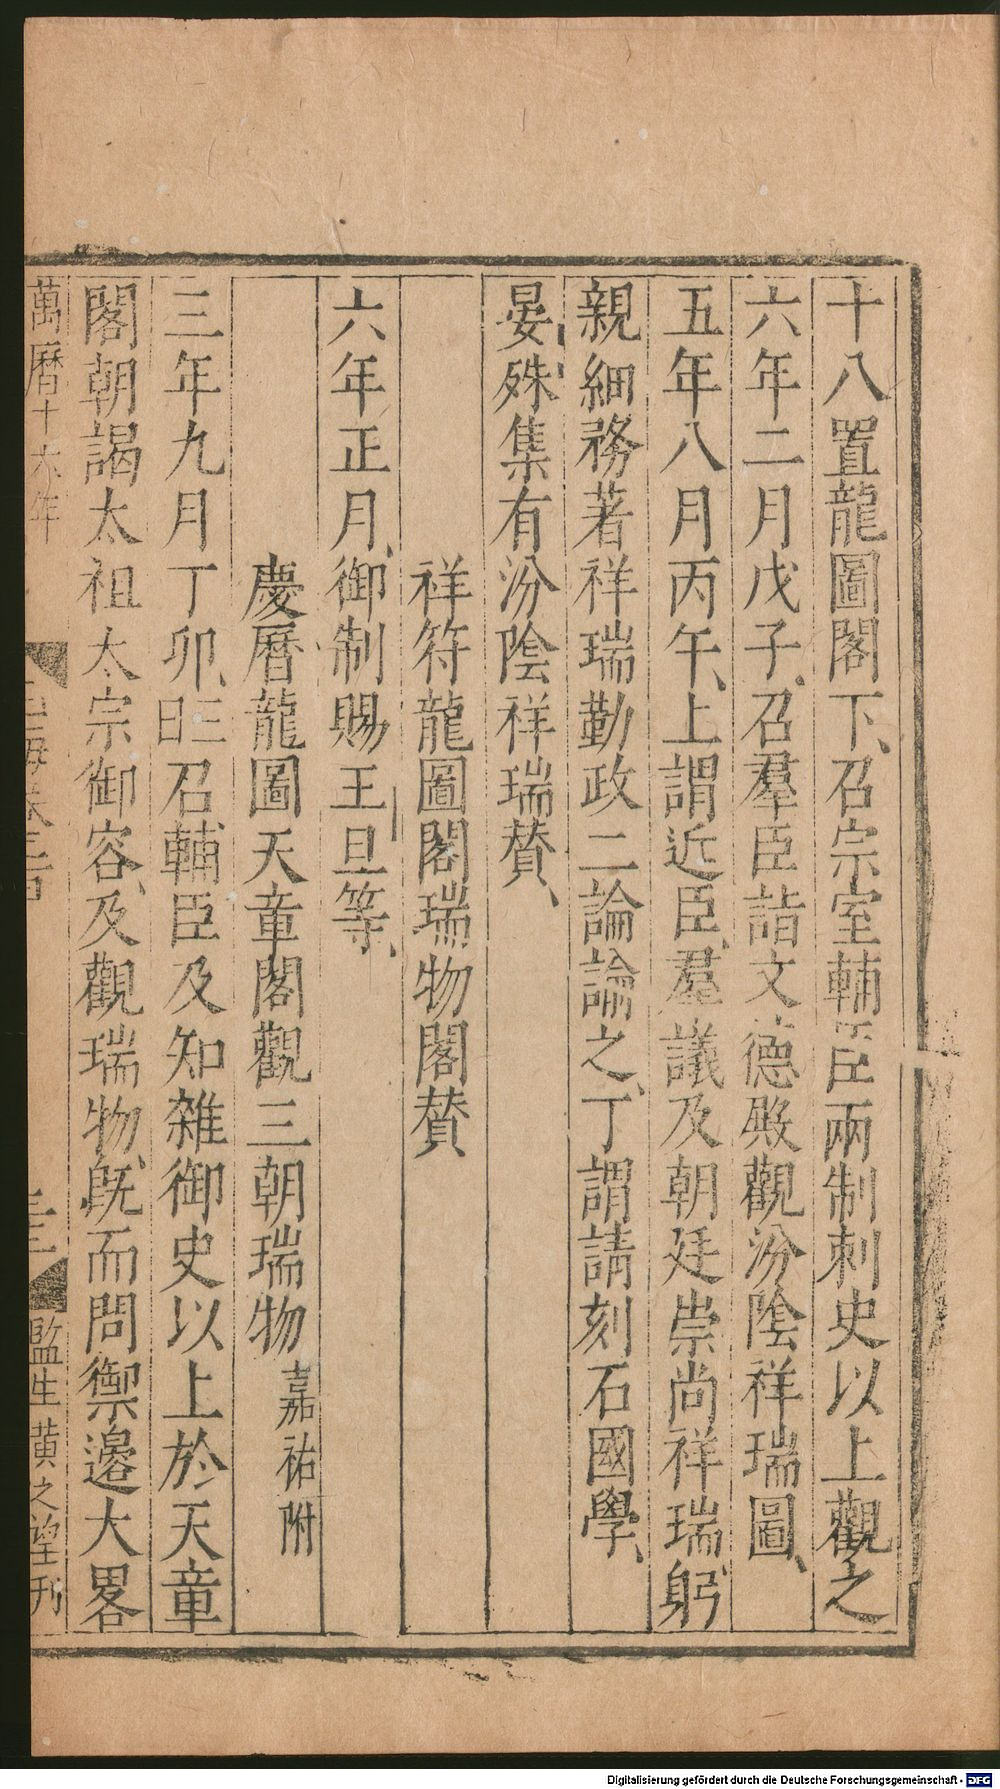 十八置龍圖閣下、召宗室輔臣兩制刺史以上觀之
六年二月戊子、召羣臣詣文德殿觀汾陰祥瑞圖、
五年八月丙午、上謂近臣、羣議及朝廷崇尚祥瑞、躬
親細務著祥瑞勤政二論論之、丁謂請刻石國學、
晏殊集有汾陰祥瑞贊、
祥符龍圖閣瑞物閣贊
六年正月、御制賜王旦等、
慶曆龍圖天章閣觀三朝瑞物嘉祐附
三年九月丁卯、三日召輔臣及知雜御史以上於天章
閣朝謁太祖太宗御容、及觀瑞物、旣而問禦邊大畧
萬曆十六年
監生黃之望刊
Digitalisierung gefördert durch die Deutsche Forschungsgemeinschaft - DFG